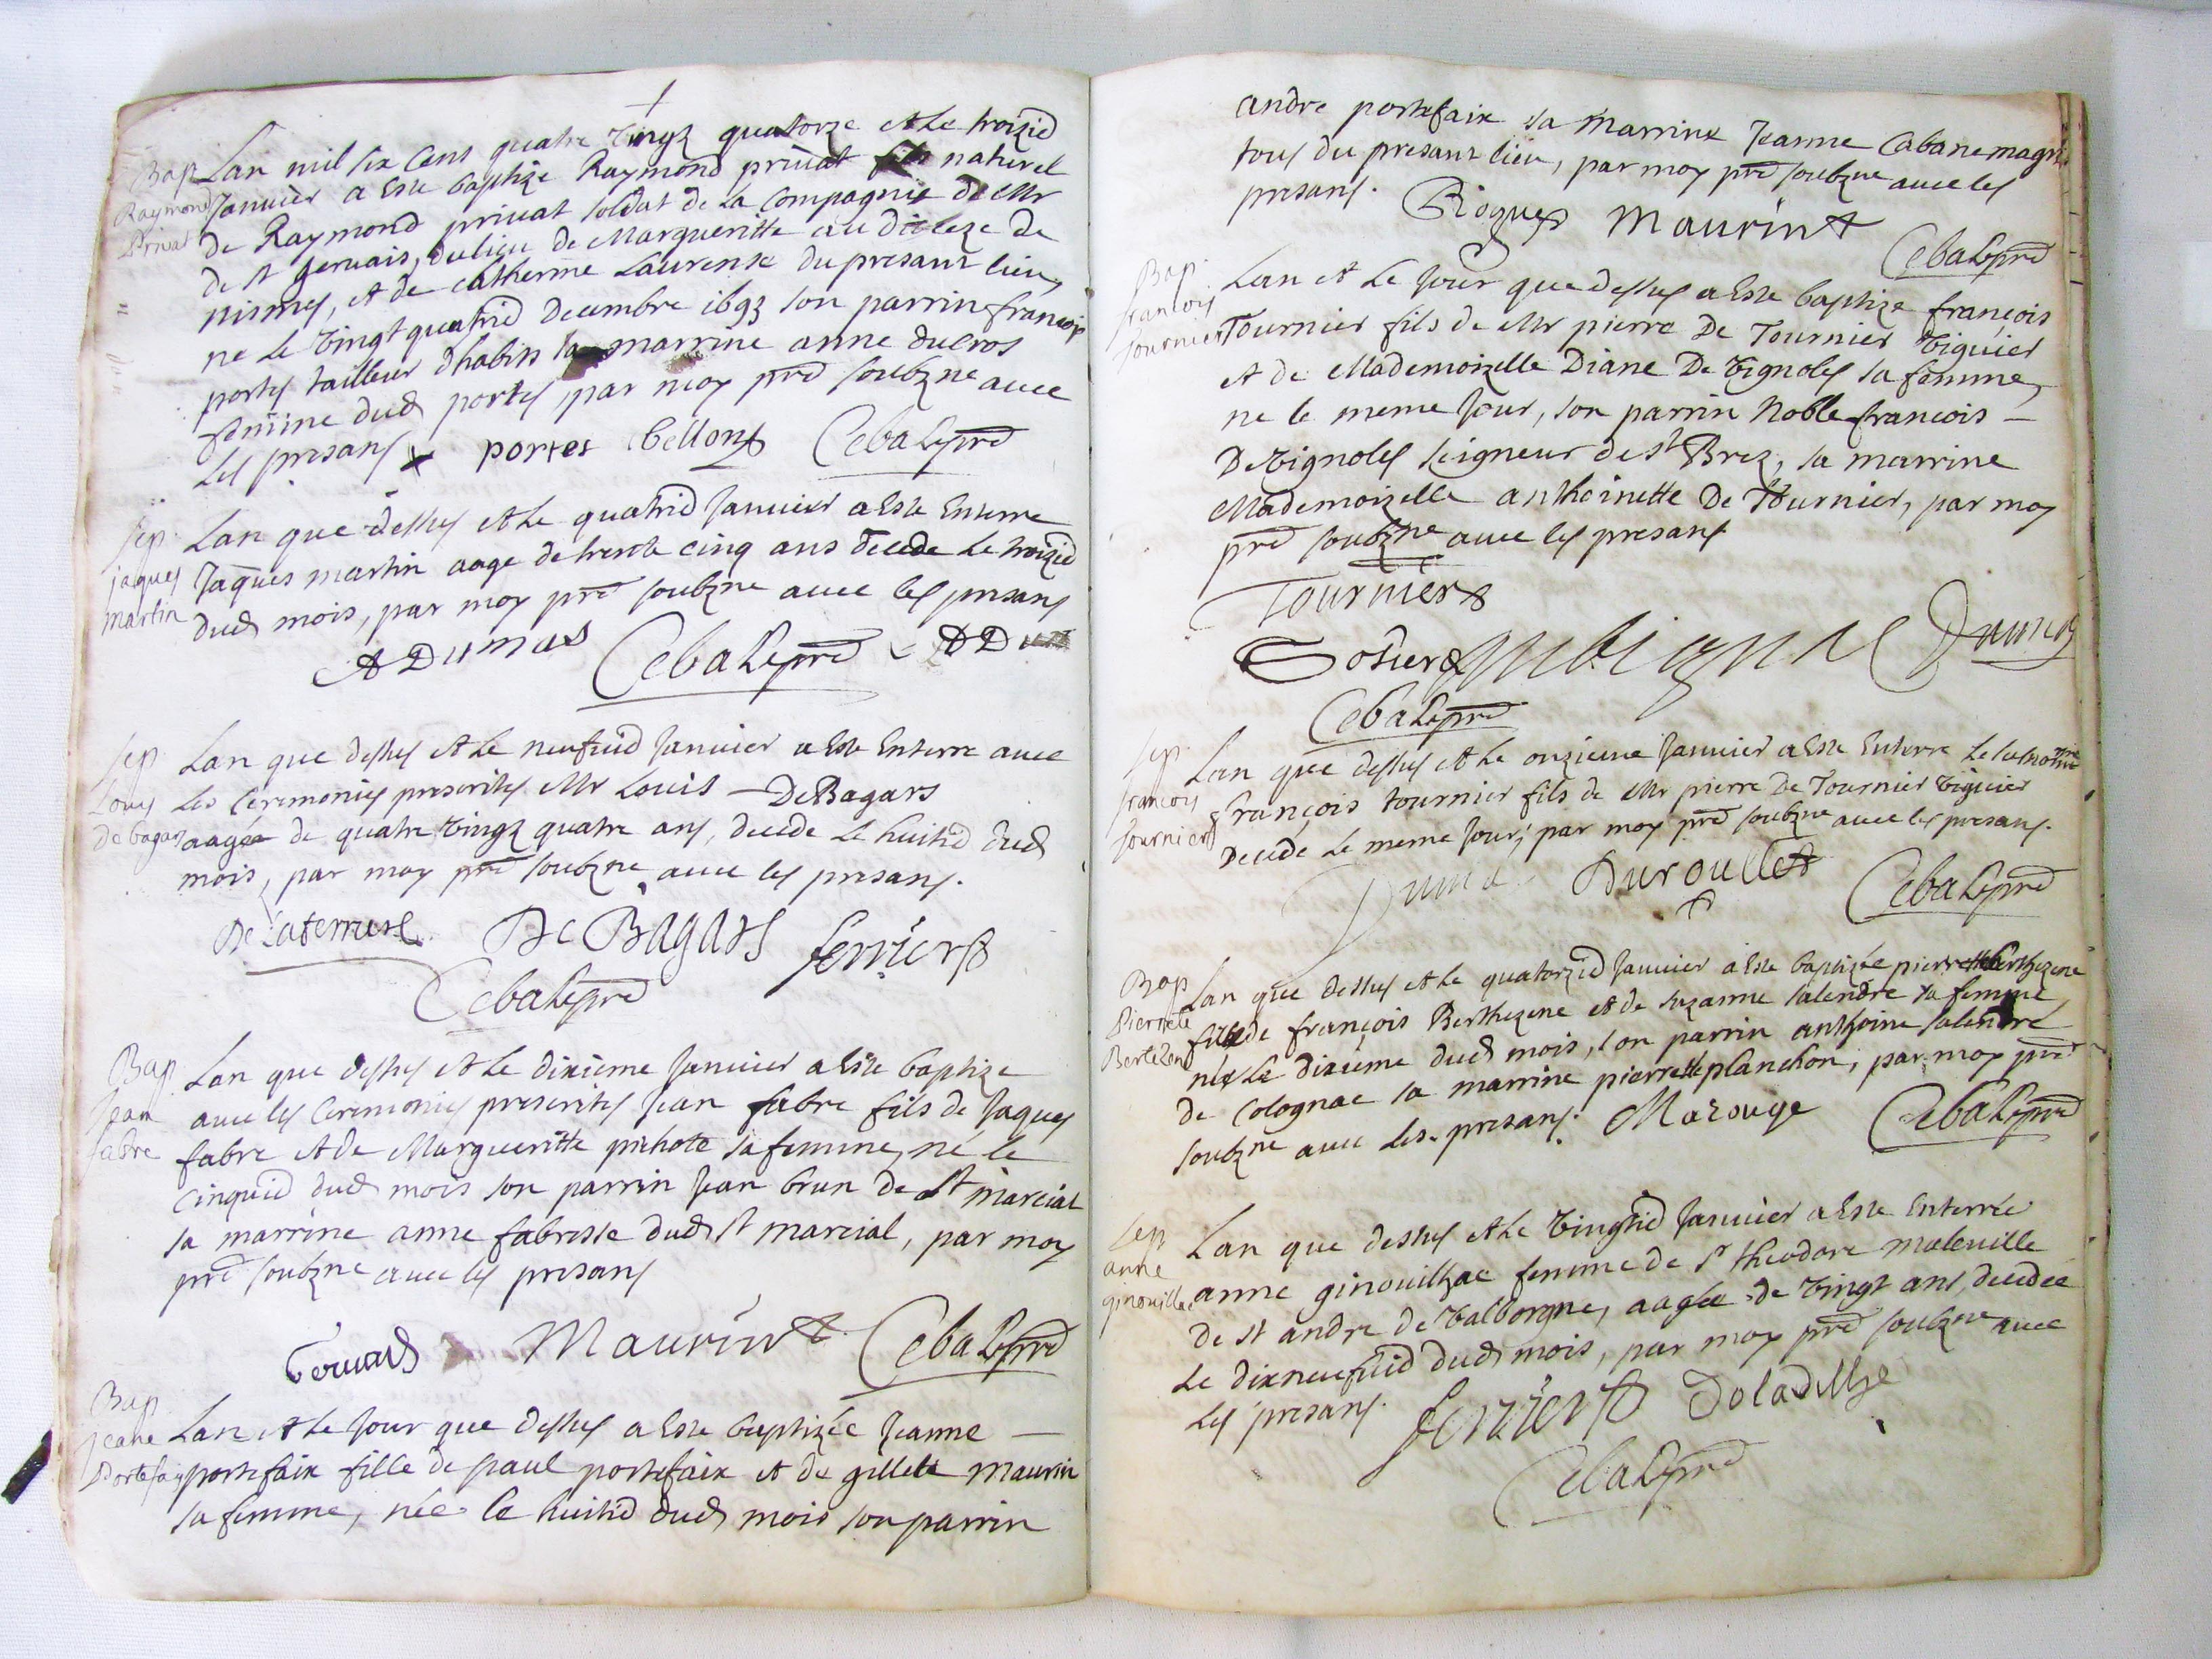 Bap
Raymond
Privat
Lan mil six Cens quatre vingz quatorze et le troizie
Janvier a este baptize Raymond privat fils naturel
de Raymond privat soldat de la Compagnie de Mr
de st gervais, du lieu de Margueritte au dioceze de
nismes, et de Catherine Laurense du presant lieu,
ne le vingt quatrie decembre 1693 son parrin francois
portes tailleur dhabits sa marrine anne ducros
femme dud portes, par moy pre soubzne avec
les presans portes bellon Ceba pre
Sep.
jaques
martin
Lan que dessus et le quatrie Janvier a este Enterre
Jaques martin aage de trente cinq ans decede le troizie
dud mois, par moy pre soubzne avec les presans
ADumas Ceba pre
Sep.
Louys
De bagars
Lan que dessus et le neufvie Janvier a este Enterre avec
les Ceremonies prescrites Mr Louis — De Bagars
aagée de quatre vingz quatre ans, decede le huitie dud
mois, par moy pre soubzne avec les presans.
De Bagars ferrier
Ceba pre
Bap
Jean
fabre
Lan que dessus et le dixieme Janvier a este baptize
avec les Ceremonies prescrites Jean fabre fils de Jaques
fabre et de Margueritte pichote sa femme, né le
cinquie dud mois son parrin Jean brun de st marcial
sa marrine anne fabresse dud st marcial, par moy
pre soubzne avec les presans
Maurin Ceba pre
Bap
jeane
Portefaix
Lan et le Jour que dessus a este baptizée Jeanne —
portefaix fille de paul portefaix et de gillette maurin
sa femme, née le huitie dud mois son parrin
andre portefaix sa marrine Jeanne Cabanemagre
tous du presant lieu, par moy pre soubzne avec les
presans. Roques Maurin
Ceba pre
Bap.
francois
tournier
Lan et le Jour que dessus a este baptize françois
Tournier fils de Mr pierre De Tournier viguier
et de Mademoizelle Diane De vignoles sa femme,
ne le meme Jour, son parrin Noble francois —
De vignoles seigneur de st Brez, sa marrine
Mademoizelle anthoinette De Tournier, par moy
pre soubzne avec les presans
Tournier
Ceba pre
Sep.
francois
tournier
Lan que dessus et le onzieme Janvier a este Enterre
françois tournier fils de Mr pierre De Tournier viguier
Decedé le meme Jour, par moy pre soubzne avec les presans.
Duroulle Ceba pre
Bap
Pierrete
Bertezen
Lan que dessus et le quatorzie Janvier a este baptizée pierrette berthezene
fille de françois Berthezene et de suzanne salendre sa femme
née le dixieme dud mois, son parrin anthoine salendre
de Colognac sa marrine pierrette planchon, par moy pre
soubzne avec les presans. Marouge Ceba pre
Sep
anne
ginouillac
Lan que dessus et le vingtie Janvier a este Enterrée
anne ginouilhac femme de sr theodore maleville
de st andre de valborgne, aagée de vingt ans, decedée
le dixneufvie dud mois, par moy pre soubzne avec
les presans. ferrier Doladilhe
Ceba pre